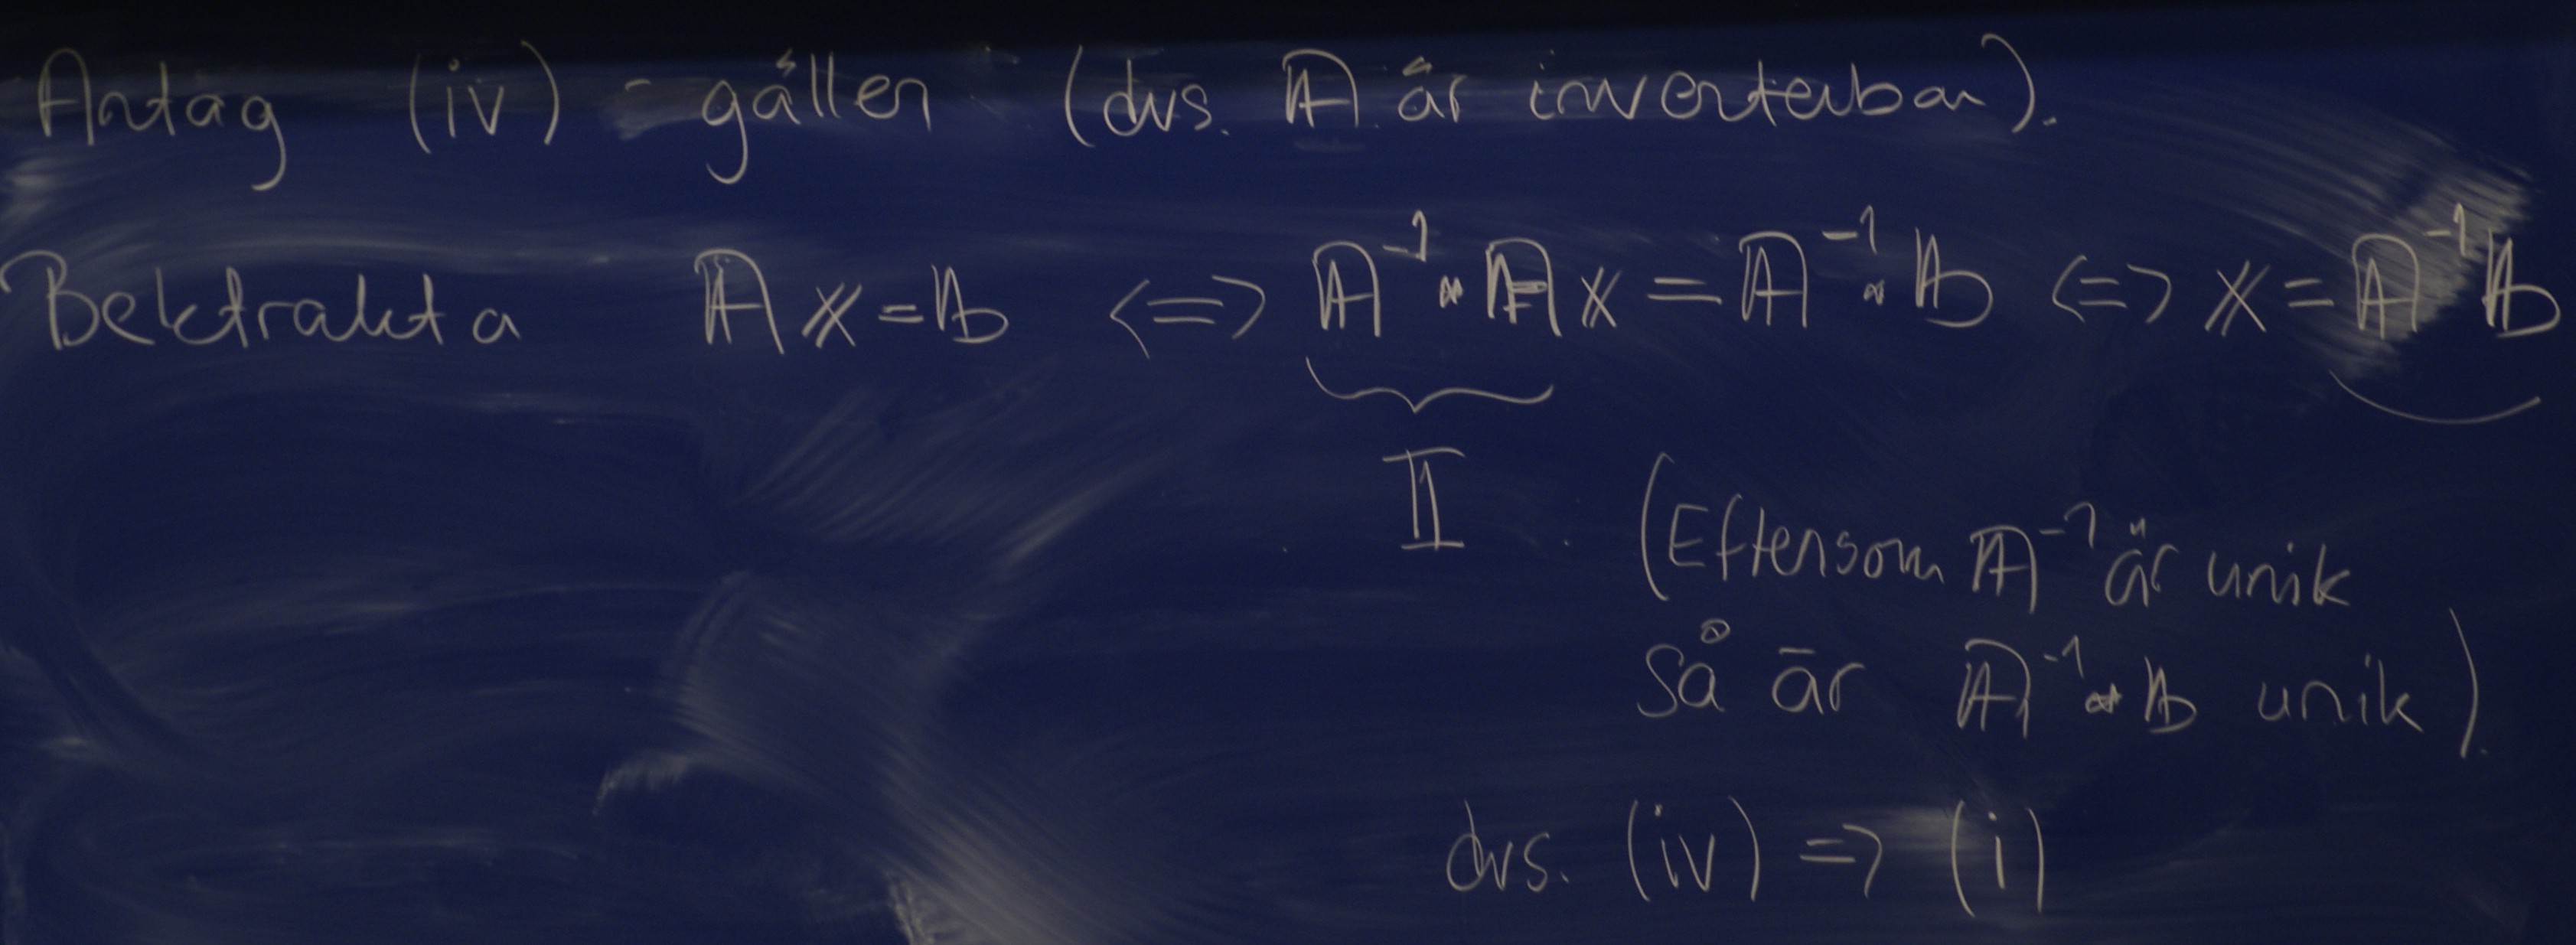 Antag (iv) gäller (dvs. 𝔸 är inverterbar).
Bektrakta 𝔸𝕩=𝕓 <=> 𝔸⁻¹·𝔸𝕩 = 𝔸⁻¹·𝕓 <=> 𝕩=𝔸⁻¹𝕓
𝕀 (Eftersom 𝔸⁻¹ är unik
så är 𝔸⁻¹·𝕓 unik).
dvs. (iv) => (i)